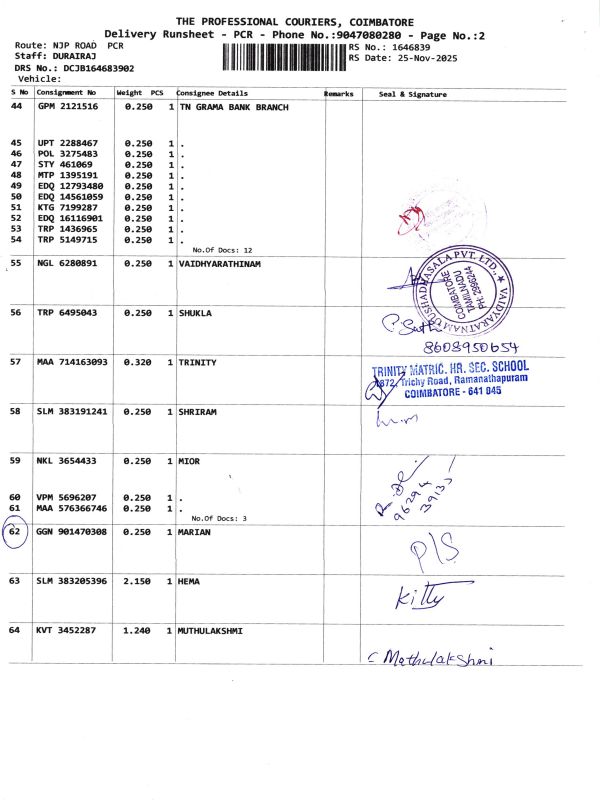 THE PROFESSIONAL COURIERS, COIMBATORE
Delivery Runsheet - PCR - Phone No.:9047080280 - Page No.:2
Route: NJP ROAD PCR
Staff: DURAIRAJ
DRS No.: DCJB164683902
Vehicle:
RS No.: 1646839
RS Date: 25-Nov-2025
S No Consignment No Weight PCS Consignee Details Remarks Seal & Signature
44 GPM 2121516 0.250 1 TN GRAMA BANK BRANCH
45 UPT 2288467 0.250 1 .
46 POL 3275483 0.250 1 .
47 STY 461069 0.250 1 .
48 MTP 1395191 0.250 1 .
49 EDQ 12793480 0.250 1 .
50 EDQ 14561059 0.250 1 .
51 KTG 7199287 0.250 1 .
52 EDQ 16116901 0.250 1 .
53 TRP 1436965 0.250 1 .
54 TRP 5149715 0.250 1 .
No.Of Docs: 12
55 NGL 6280891 0.250 1 VAIDHYARATHINAM
VAIDYARATNAM OUSHADHASALA PVT. LTD.,
COIMBATORE
TAMIL NADU
PH: 2996244
56 TRP 6495043 0.250 1 SHUKLA
8608950654
57 MAA 714163093 0.320 1 TRINITY
TRINITY MATRIC. HR. SEC. SCHOOL
1872, Trichy Road, Ramanathapuram
COIMBATORE - 641 045
58 SLM 383191241 0.250 1 SHRIRAM
59 NKL 3654433 0.250 1 MIOR
96294
60 VPM 5696207 0.250 1 .
61 MAA 576366746 0.250 1 .
No.Of Docs: 3
62 GGN 901470308 0.250 1 MARIAN
P/S
63 SLM 383205396 2.150 1 HEMA
Kitty
64 KVT 3452287 1.240 1 MUTHULAKSHMI
C Mathulakshmi